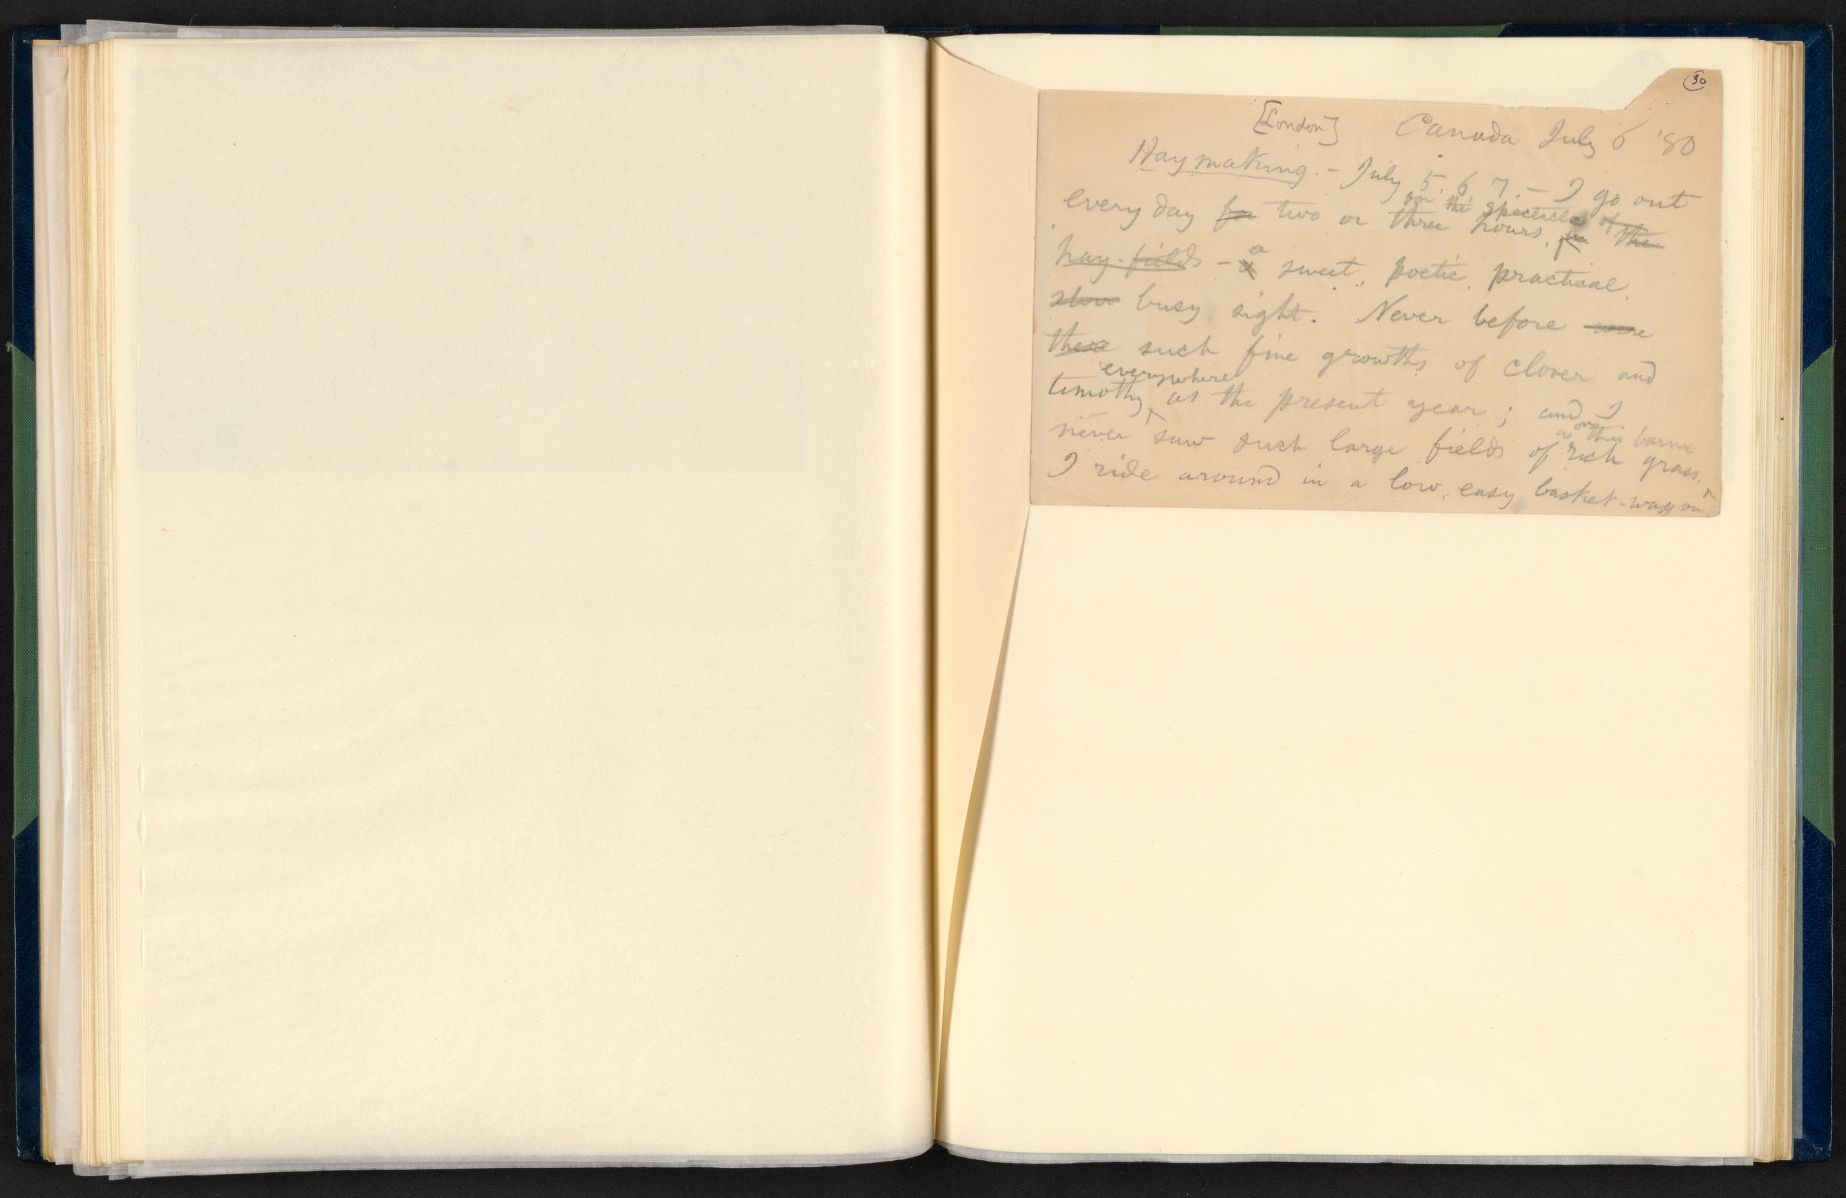 30
[London] Canada July 6 '80
Haymaking. - July 5 6 7. - I go out
for the spectacle of
every day for two or three hours, in the
a
hay-fields - sweet, poetic, practical,
slow busy sight. Never before were
there such fine growths of clover and
everywhere
timothy as the present year; and I
as on this
never saw such large fields of rich grass.
I ride around in a low, easy basket-wagon